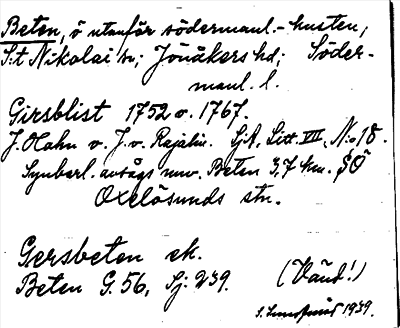 Beten, ö utanför södermanl.-kusten,
S:t Nikolai sn; Jönåkers hd; Söder-
manl. l.
Girsblist 1752 o. 1767.
J. Hahn o. J. v. Rajalin. SjA, Litt. VII, N:o 18.
Synbarl. avsågs nuv. Beten 3,7 km. SÖ
Oxelösunds stn.
Gersbeten ek.
Beten G. 56, Sj. 239.
(Vänd!)
1939.